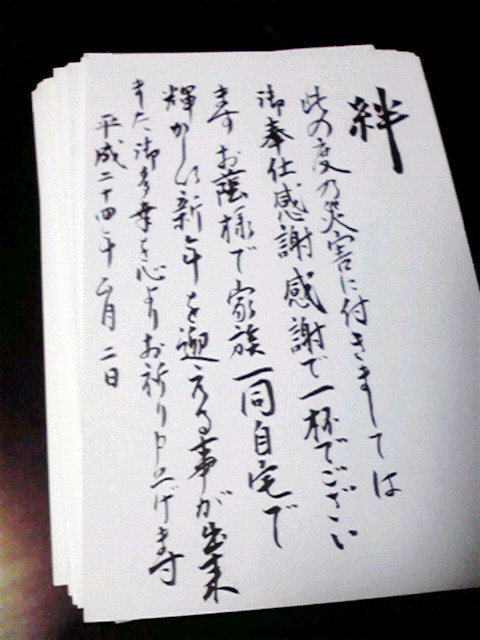 絆
此の度の災害に付きましては
御奉仕感謝感謝で一杯でござい
ます お蔭様で家族一同自宅で
輝かしい新年を迎える事が出来
また御多幸を心よりお祈り申上げます
平成二十四年 月二日